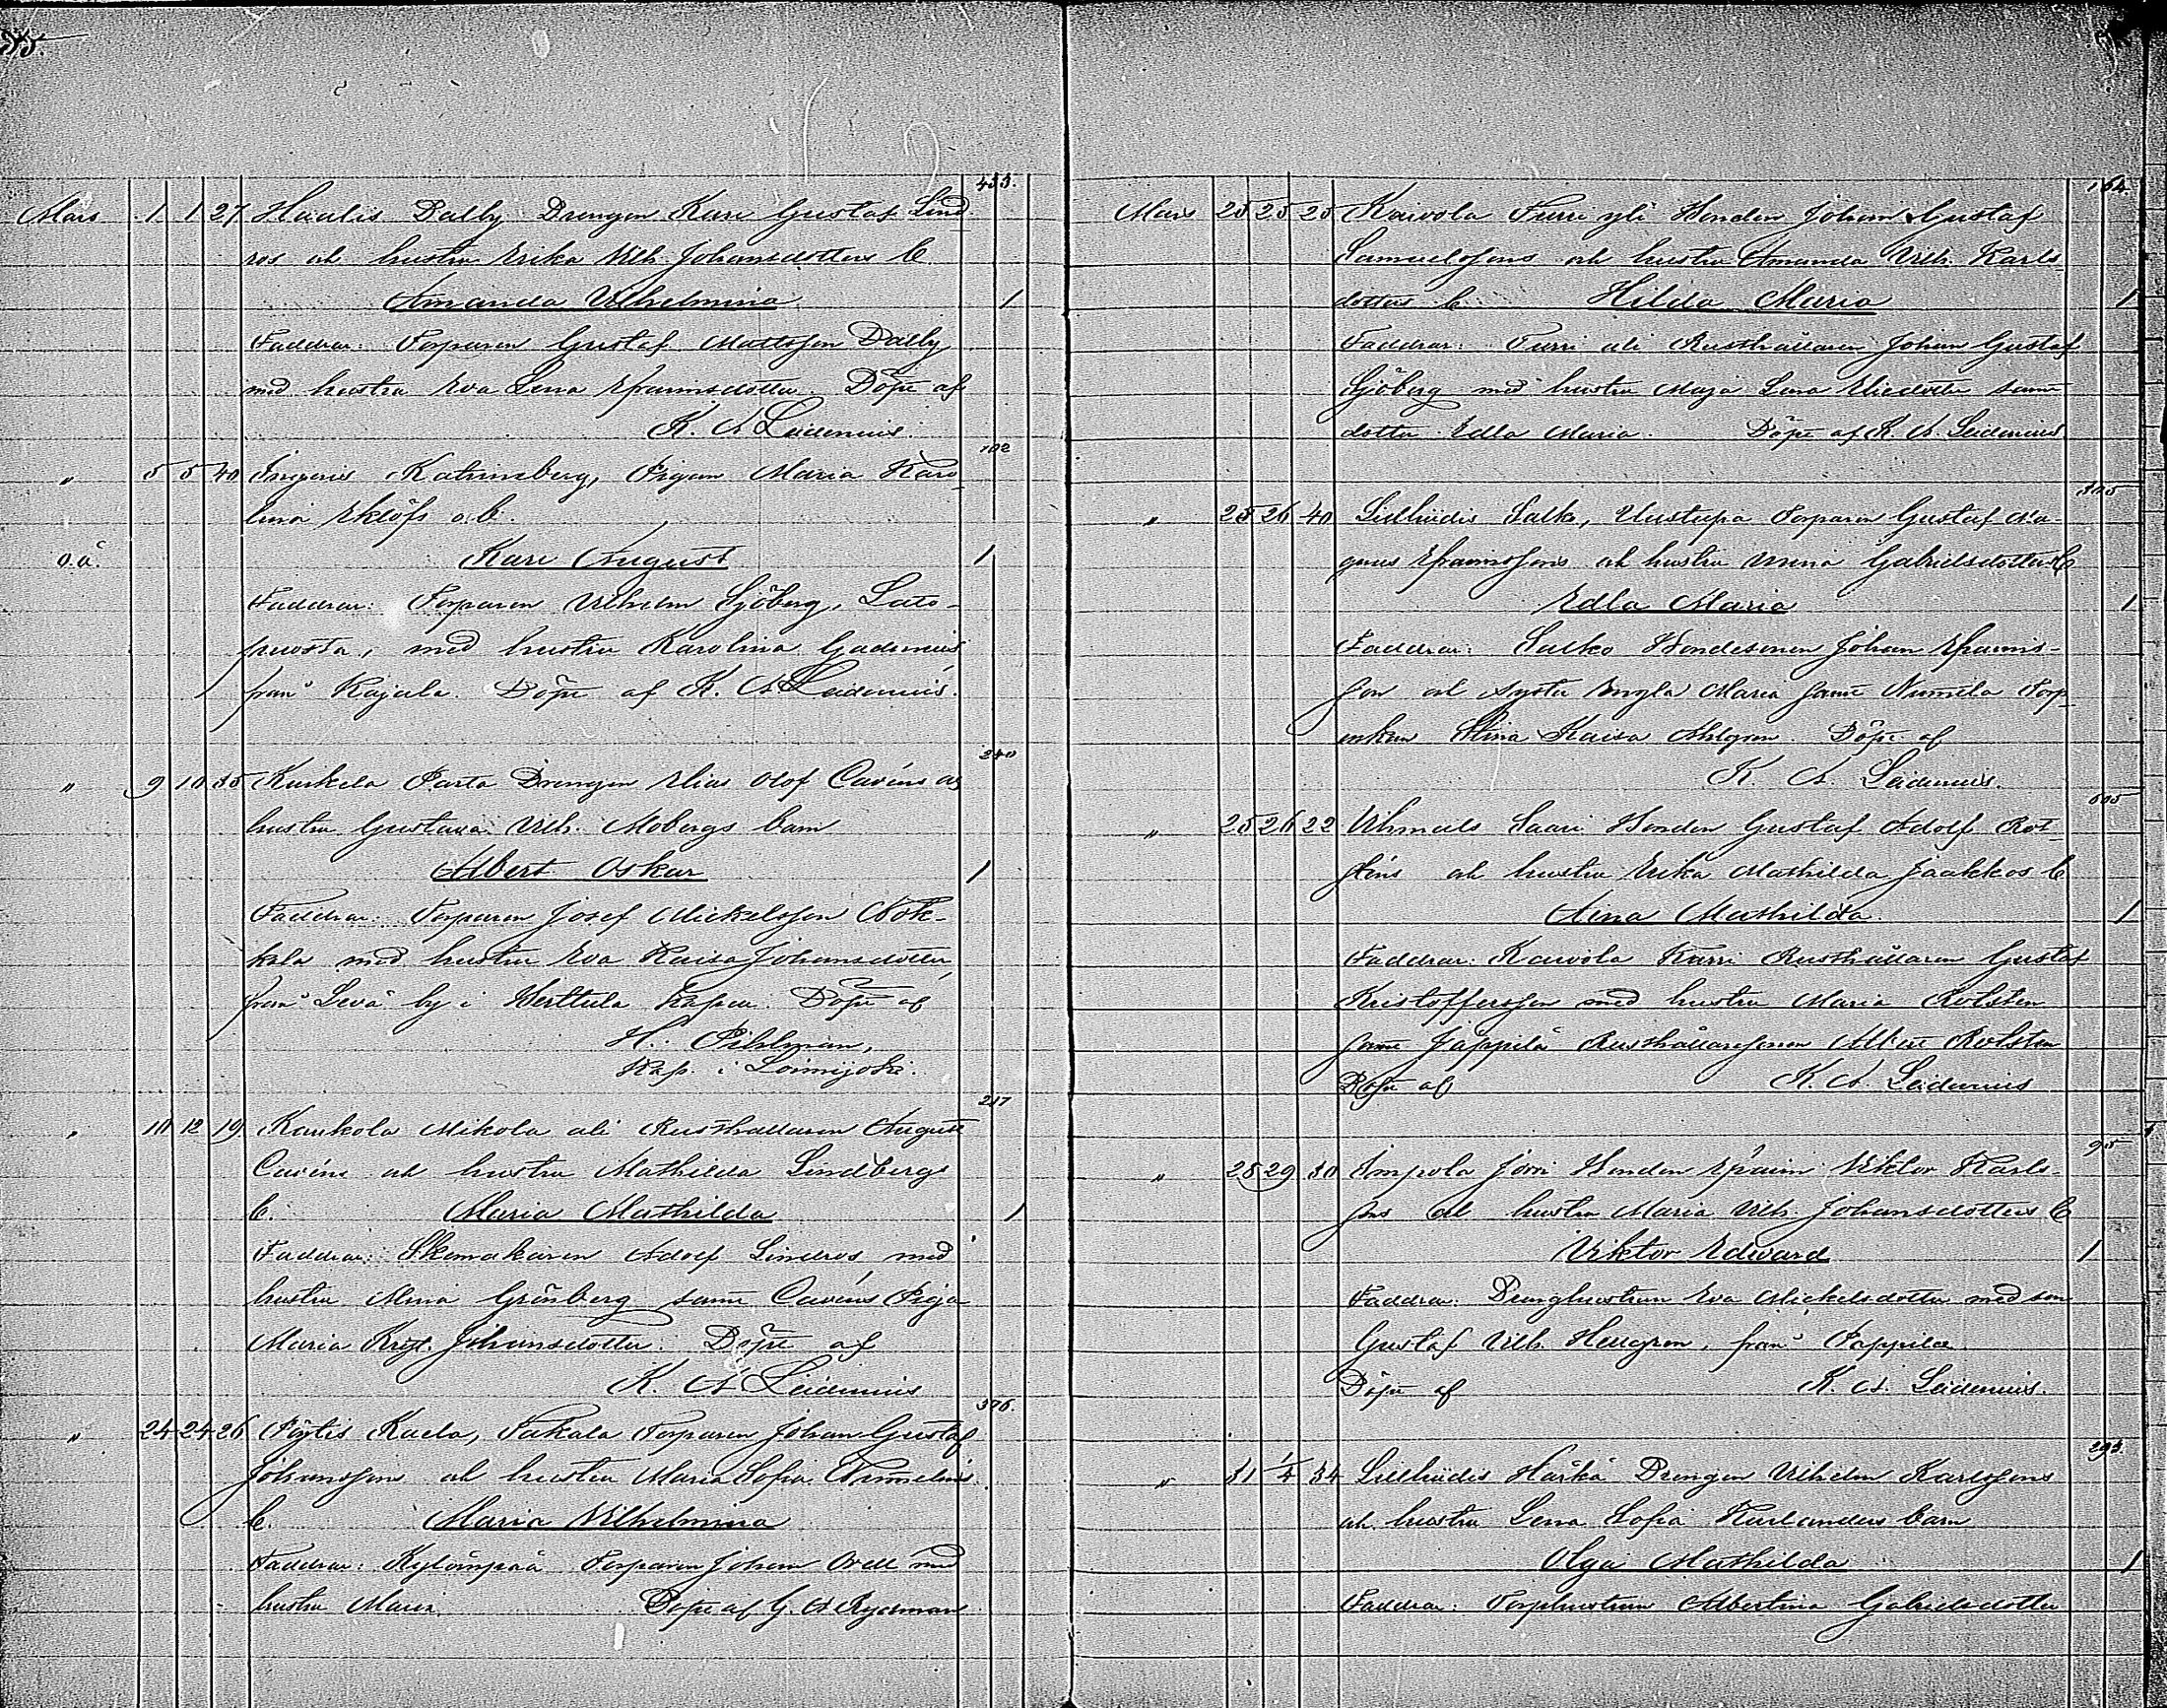 35.
433.
Mars 1 1 27 Haalis Dalby Drengen Karl Gustaf Lind-
ros och hustru Erika Vilh. Johansdotters b.
Amanda Vilhelmina 1
Faddrar: Torparen Gustaf Mattsson Dalby
med hustru Eva Lena Efraimsdotter. Döpt af
K. A. Leidenius.
102
" 5 5 40 Ingeris Katrinsberg, Pigan Maria Karo-
lina Eklöfs o.b.
o.ä. Karl August 1
Faddrar: Torparen Vilhelm Sjöberg, Lato-
med hustru Karolina Gadenius
från Kajala. Döpt af K. A. Leidenius.
240
" 9 10 35 Kuikela Parta Drengen Elias Olof Cavéns o.
hustru Gustava Vilh. Mobergs barn
Albert Oskar 1
Faddrar: Torparen Josef Mickelsson
med hustru Eva Kaisa Johansdotter
från Levä by i Merttula Döpt af
H. Pihlman,
Kap. i Loimijoki.
217
" 10 12 19 Kankola Mikola ali Rusthållaren August
Cavéns och hustru Mathilda Lindbergs
b. Maria Mathilda 1
Faddrar: Skomakaren Adolf Lindros med
hustru Mina Grönberg samt Cavéns Piga
Maria Krist. Johansdotter. Döpt af
K. A. Leidenius
376.
" 24 24 26 Pöytis Kaela, Takala Torparen Johan Gustaf
Johanssons och hustru Maria Sofia
b. Maria Vilhelmina
Faddrar: Kylänpää Torparen Johan Ovell med
hustru Maria. Döpt af G. A. Rydman
164
Mars 25 25 25 Karvola Furri yli Bonden Johan Gustaf
Samuelssons och hustru Amanda Vilh. Karls-
dotters b. Hilda Maria 1
Faddrar: Furri ali Rusthållaren Johan Gustaf
Sjöberg med hustru Maja Lena Eliedotter samt
dotter Edla Maria. Döpt af K. A. Leidenius.
" 25 26 40 Liedhiidis Salko, Uusitupa Torparen Gustaf Ma-
gnus Efraimssons och hustru Mina Gabrielsdotters b
Edla Maria 1
Faddrar: Salko Bondesonen Johan Efraims-
son och syster Engla Maria samt Numila Torp-
enkan Stina Kaisa Ahlgren. Döpt af
K. A. Leidenius.
605
" 25 26 22 Vihmals Saari Bonden Gustaf Adolf Rot-
sténs och hustru Erika Mathilda Jaakkos b
Aina Mathilda. 1
Faddrar: Karvola Karri Rusthållaren Gustaf
Kristoffersson med hustru Maria Rotsten
samt Jäppilä Rusthållaresonen Albert Rotsten
Döpt af K. A. Leidenius
95
" 25 29 30 Impola Jõrri Bonden Efraim Viktor Karls-
sons och hustru Maria Vilh. Johansdotters b
Viktor Edvard 1
Faddrar: Drenghustrun Eva Mickelsdotter med son
Gustaf Vilh. Hellgren, från Pappila.
Döpt af K. A. Leidenius.
293.
" 31 1/4 34 Liedhiidis Härkä Drengen Vilhelm Karlssons
och hustru Lena Sofia Harlanders barn
Olga Mathilda 1
Faddrar: Torphustrun Albertina Gabrielsdotter